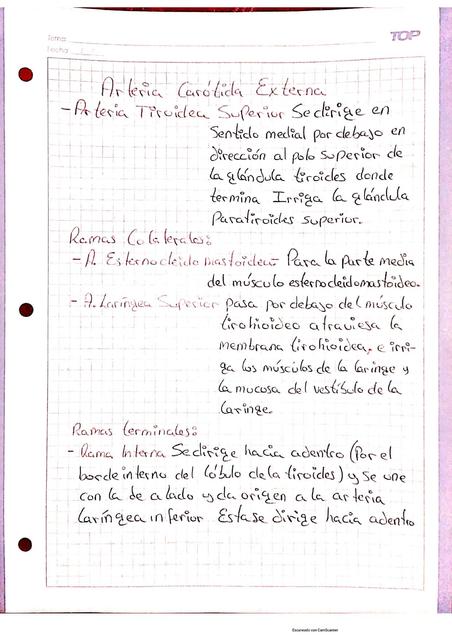 Tema:
Fecha:
TOP
Arteria Carótida Externa
- Arteria Tiroidea Superior Se dirige en
Sentido medial por debajo en
dirección al polo Superior de
la glándula tiroides donde
termina Irriga la glándula
Paratiroides superior.
Ramas Colaterales:
- A. Esternocleidomastoidea- Para la parte media
del músculo esternocleidomastoideo.
- A. Laríngea Superior pasa por debajo del músculo
tirohioideo atraviesa la
membrana tirohioidea, e irri-
ga los músculos de la laringe y
la mucosa del vestíbulo de la
laringe.
Ramas terminales:
- Rama Interna Se dirige hacia adentro (Por el
borde interno del lóbulo de la tiroides) y se une
con la de a lado y da origen a la arteria
laríngea inferior Esta se dirige hacia adentro
Escaneado con CamScanner